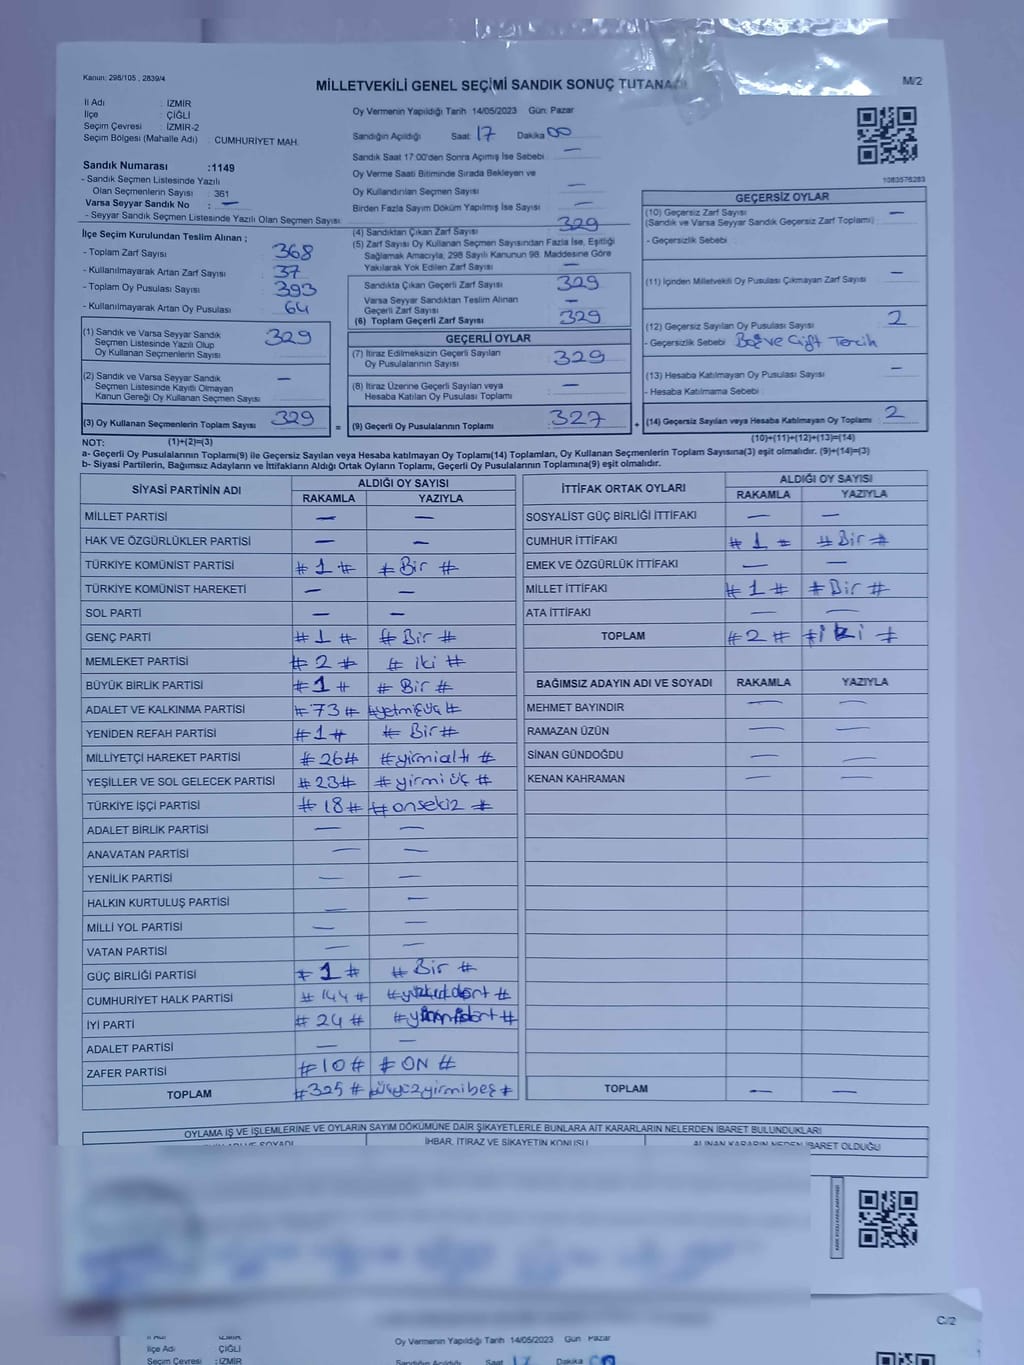 Kanun: 298/105 , 2839/4
MİLLETVEKİLİ GENEL SEÇİMİ SANDIK SONUÇ TUTANAĞI
M/2
İl Adı : İZMİR
İlçe : ÇİĞLİ
Seçim Çevresi : İZMİR-2
Seçim Bölgesi (Mahalle Adı) : CUMHURİYET MAH.
Sandık Numarası :1149
- Sandık Seçmen Listesinde Yazılı
Olan Seçmenlerin Sayısı : 361
Varsa Seyyar Sandık No : —
- Seyyar Sandık Seçmen Listesinde Yazılı Olan Seçmen Sayısı:
Oy Vermenin Yapıldığı Tarih 14/05/2023 Gün: Pazar
Sandığın Açıldığı Saat 17 Dakika 00
Sandık Saat 17:00'den Sonra Açılmış İse Sebebi : —
Oy Verme Saati Bitiminde Sırada Bekleyen ve
Oy Kullandırılan Seçmen Sayısı —
Birden Fazla Sayım Döküm Yapılmış İse Sayısı —
1083576283
İlçe Seçim Kurulundan Teslim Alınan ;
- Toplam Zarf Sayısı : 368
- Kullanılmayarak Artan Zarf Sayısı : 37
- Toplam Oy Pusulası Sayısı : 393
- Kullanılmayarak Artan Oy Pusulası : 64
(1) Sandık ve Varsa Seyyar Sandık
Seçmen Listesinde Yazılı Olup
Oy Kullanan Seçmenlerin Sayısı : 329
(2) Sandık ve Varsa Seyyar Sandık
Seçmen Listesinde Kayıtlı Olmayan
Kanun Gereği Oy Kullanan Seçmen Sayısı : —
(3) Oy Kullanan Seçmenlerin Toplam Sayısı : 329
(4) Sandıktan Çıkan Zarf Sayısı : 329
(5) Zarf Sayısı Oy Kullanan Seçmen Sayısından Fazla İse, Eşitliği
Sağlamak Amacıyla; 298 Sayılı Kanunun 98. Maddesine Göre
Yakılarak Yok Edilen Zarf Sayısı : —
Sandıkta Çıkan Geçerli Zarf Sayısı : 329
Varsa Seyyar Sandıktan Teslim Alınan
Geçerli Zarf Sayısı : —
(6) Toplam Geçerli Zarf Sayısı : 329
GEÇERLİ OYLAR
(7) İtiraz Edilmeksizin Geçerli Sayılan
Oy Pusulalarının Sayısı : 329
(8) İtiraz Üzerine Geçerli Sayılan veya
Hesaba Katılan Oy Pusulası Toplamı : —
= (9) Geçerli Oy Pusulalarının Toplamı : 327
GEÇERSİZ OYLAR
(10) Geçersiz Zarf Sayısı —
(Sandık ve Varsa Seyyar Sandık Geçersiz Zarf Toplamı) :
- Geçersizlik Sebebi :
(11) İçinden Milletvekili Oy Pusulası Çıkmayan Zarf Sayısı : —
(12) Geçersiz Sayılan Oy Pusulası Sayısı : 2
- Geçersizlik Sebebi : Boş ve Çift Tercih
(13) Hesaba Katılmayan Oy Pusulası Sayısı : —
- Hesaba Katılmama Sebebi :
+ (14) Geçersiz Sayılan veya Hesaba Katılmayan Oy Toplamı : 2
NOT: (1)+(2)=(3)
(10)+(11)+(12)+(13)=(14)
a- Geçerli Oy Pusulalarının Toplamı(9) ile Geçersiz Sayılan veya Hesaba katılmayan Oy Toplamı(14) Toplamları, Oy Kullanan Seçmenlerin Toplam Sayısına(3) eşit olmalıdır. (9)+(14)=(3)
b- Siyasi Partilerin, Bağımsız Adayların ve İttifakların Aldığı Ortak Oyların Toplamı, Geçerli Oy Pusulalarının Toplamına(9) eşit olmalıdır.
SİYASİ PARTİNİN ADI ALDIĞI OY SAYISI
RAKAMLA YAZIYLA
MİLLET PARTİSİ — —
HAK VE ÖZGÜRLÜKLER PARTİSİ — —
TÜRKİYE KOMÜNİST PARTİSİ # 1 # # Bir #
TÜRKİYE KOMÜNİST HAREKETİ — —
SOL PARTİ — —
GENÇ PARTİ # 1 # # Bir #
MEMLEKET PARTİSİ # 2 # # iki #
BÜYÜK BİRLİK PARTİSİ # 1 # # Bir #
ADALET VE KALKINMA PARTİSİ # 73 # #yetmişüç#
YENİDEN REFAH PARTİSİ # 1 # # Bir #
MİLLİYETÇİ HAREKET PARTİSİ # 26 # #yirmialtı #
YEŞİLLER VE SOL GELECEK PARTİSİ # 23 # #yirmi üç #
TÜRKİYE İŞÇİ PARTİSİ # 18 # #onsekiz #
ADALET BİRLİK PARTİSİ — —
ANAVATAN PARTİSİ — —
YENİLİK PARTİSİ — —
HALKIN KURTULUŞ PARTİSİ — —
MİLLİ YOL PARTİSİ — —
VATAN PARTİSİ — —
GÜÇ BİRLİĞİ PARTİSİ # 1 # # Bir #
CUMHURİYET HALK PARTİSİ # 144 #
İYİ PARTİ # 24 #
ADALET PARTİSİ — —
ZAFER PARTİSİ # 10 # # ON #
TOPLAM # 325 # üçyüzyirmibeş #
İTTİFAK ORTAK OYLARI ALDIĞI OY SAYISI
RAKAMLA YAZIYLA
SOSYALİST GÜÇ BİRLİĞİ İTTİFAKI — —
CUMHUR İTTİFAKI # 1 # # Bir #
EMEK VE ÖZGÜRLÜK İTTİFAKI — —
MİLLET İTTİFAKI # 1 # # Bir #
ATA İTTİFAKI — —
TOPLAM # 2 # # iki #
BAĞIMSIZ ADAYIN ADI VE SOYADI RAKAMLA YAZIYLA
MEHMET BAYINDIR — —
RAMAZAN ÜZÜN — —
SİNAN GÜNDOĞDU — —
KENAN KAHRAMAN — —
TOPLAM — —
OYLAMA İŞ VE İŞLEMLERİNE VE OYLARIN SAYIM DÖKÜMÜNE DAİR ŞİKAYETLERLE BUNLARA AİT KARARLARIN NELERDEN İBARET BULUNDUKLARI
İHBAR, İTİRAZ VE ŞİKAYETİN KONUSU
ALINAN KARARIN NEDEN İBARET OLDUĞU
C/2
İl Adı : İZMİR
İlçe Adı : ÇİĞLİ
Seçim Çevresi : İZMİR
Oy Vermenin Yapıldığı Tarih 14/05/2023 Gün Pazar
Sandığın Açıldığı Saat 17 Dakika 00